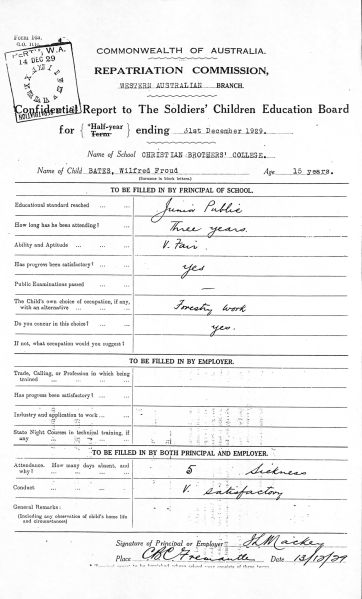 Form 16A.
PERTH, W.A.
14 DEC 29
REPATRIATION
COMMONWEALTH OF AUSTRALIA.
REPATRIATION COMMISSION,
WESTERN AUSTRALIAN BRANCH.
Confidential Report to The Soldiers' Children Education Board
for { *Half-year Term } ending 31st December 1929.
Name of School CHRISTIAN BROTHERS' COLLEGE.
Name of Child BATES, Wilfred Froud Age 15 years.
(Surname in block letters.)
TO BE FILLED IN BY PRINCIPAL OF SCHOOL.
Educational standard reached ... ... Junior Public
How long has he been attending? ... ... Three years.
Ability and Aptitude ... ... ... V. Fair.
Has progress been satisfactory? ... ... yes
Public Examinations passed ... ... —
The Child's own choice of occupation, if any, with an alternative ... ... ... Forestry work
Do you concur in this choice? ... ... yes.
If not, what occupation would you suggest?
TO BE FILLED IN BY EMPLOYER.
Trade, Calling, or Profession in which being
trained ... ... ... ...
Has progress been satisfactory? ... ...
Industry and application to work ... ...
State Night Courses in technical training, if
any ... ... ... ...
TO BE FILLED IN BY BOTH PRINCIPAL AND EMPLOYER.
Attendance. How many days absent, and why? ... ... ... 5 Sickness
Conduct ... ... ... V. satisfactory
General Remarks:
(Including any observation of child's home life
and circumstances)
Signature of Principal or Employer Mackey
Place CBC Fremantle Date 13/12/29